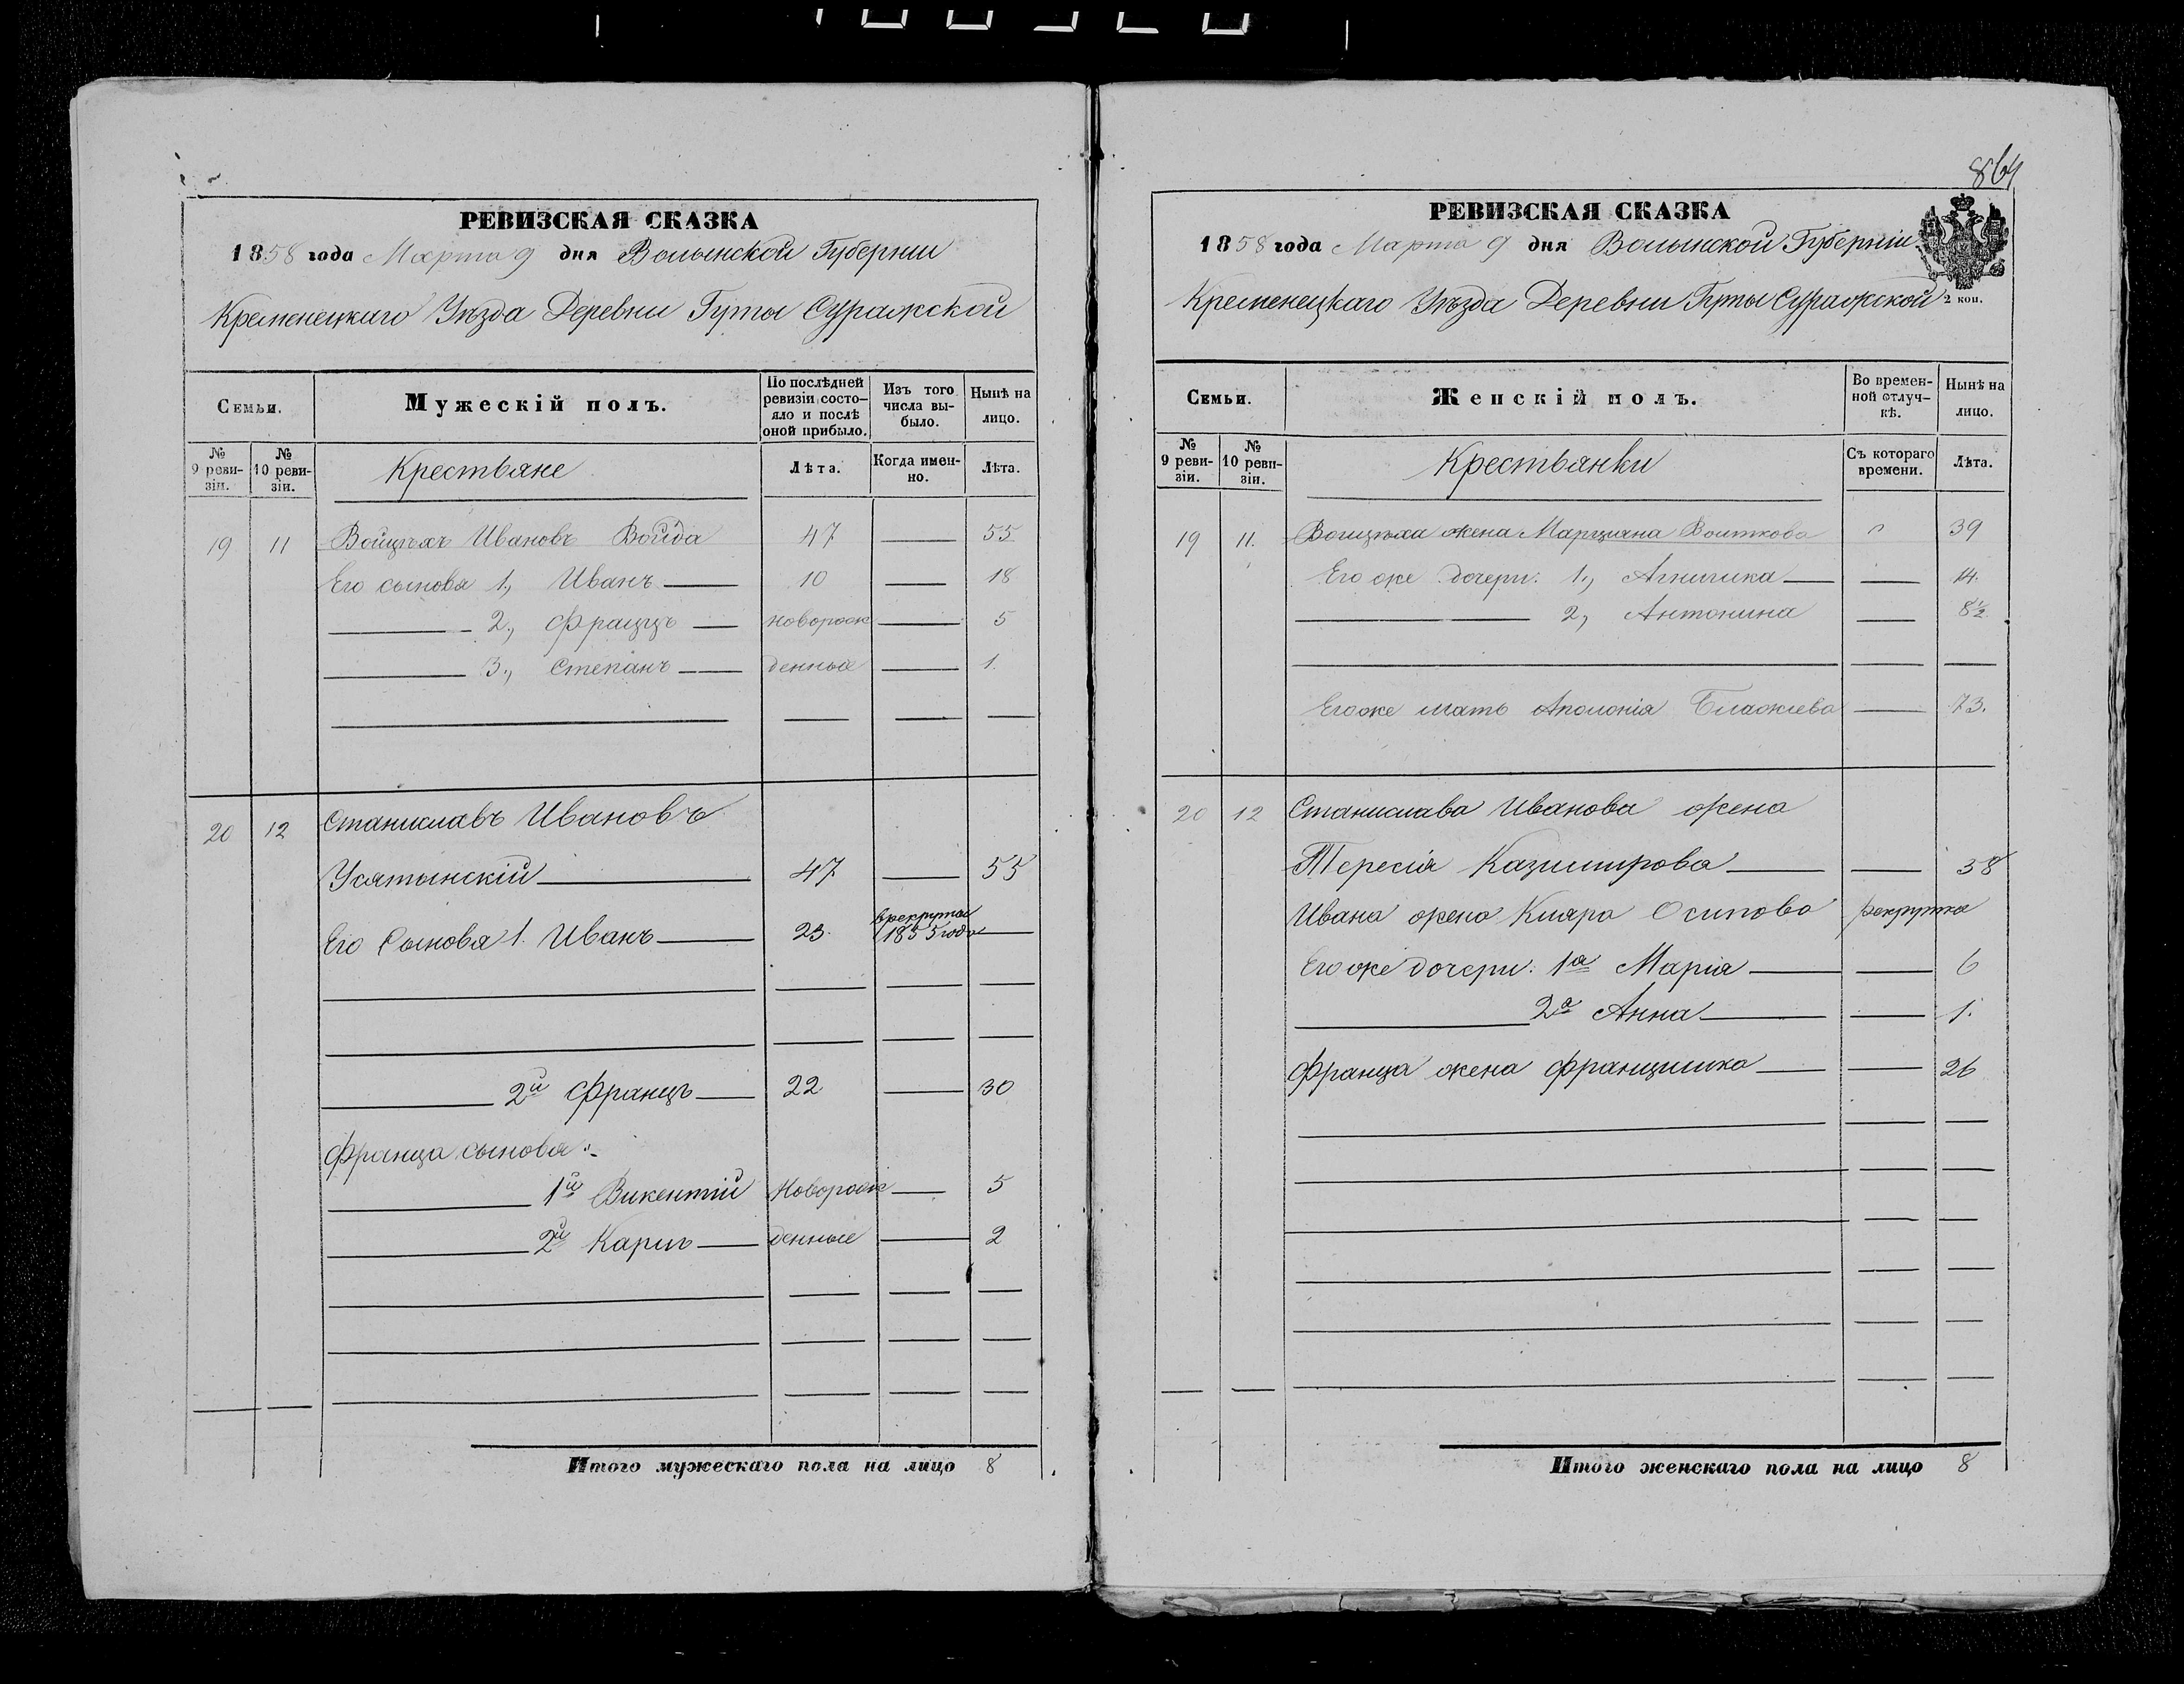 РЕВИЗСКАЯ СКАЗКА
1858 года Марта 9 дня Волынской Губернии
Кременецкаго Уѣзда Деревни Гуты Суражской
Семьи.
Мужескій полъ.
По послѣдней ревизіи состояло и послѣ оной прибыло.
Изъ того числа выбыло.
Нынѣ на лицо.
№ 9 ревизіи.
№ 10 ревизіи.
Крестьяне
Лѣта.
Когда именно.
Лѣта.
19 11 Войцѣхъ Ивановъ Войда 47 — 55
Его сыновья 1, Иванъ — 10 — 18
— 2, Францъ — новорож — 5
— 3, Степанъ — денные — 1.
20 12 Станиславъ Ивановъ
Усятынскій — 47 — 55
Его Сыновья 1. Иванъ — 23. в рекруты 1855 года —
— 2й Францъ — 22 — 30
Франца сыновья:
— 1й Викентій Новорож — 5
— 2й Карлъ — денные — 2
Итого мужескаго пола на лицо 8
864
РЕВИЗСКАЯ СКАЗКА
1858 года Марта 9 дня Волынской Губерніи
Кременецкаго Уѣзда Деревни Гуты Суражской
2 коп.
Семьи.
Женскій полъ.
Во временной отлучкѣ.
Нынѣ на лицо.
№ 9 ревизіи.
№ 10 ревизіи.
Крестьянки
Съ котораго времени.
Лѣта.
19 11. Войцѣха жена Марцяна Войткова 39
Его же дочери: 1, Агнишка — — 14.
— 2, Антонина — 8½
Его же мать Аполонія Блажіева — 73.
20 12 Станислава Иванова жена
Тересія Казимирова — — 38
Ивана жена Клара Осипова рекрутка
Его же дочери: 1а Марія — — 6
— 2а Анна — — 1.
Франца жена Францишка — — 26
Итого женскаго пола на лицо 8